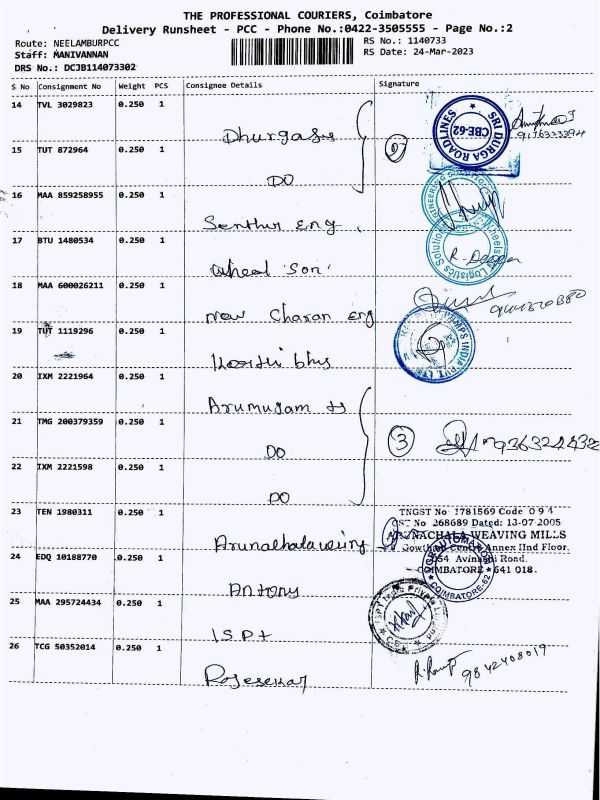 THE PROFESSIONAL COURIERS, Coimbatore
Delivery Runsheet - PCC - Phone No.:0422-3505555 - Page No.:2
Route: NEELAMBURPCC
RS No.: 1140733
Staff: MANIVANNAN
RS Date: 24-Mar-2023
DRS No.: DCJB114073302
S No Consignment No Weight PCS Consignee Details Signature
14 TVL 3029823 0.250 1
SRI DURGA ROADLINES CBE-62
15 TUT 872964 0.250 1
DO
16 MAA 859258955 0.250 1
Senthur Eng
17 BTU 1480534 0.250 1
Wheel Son
R. 
18 MAA 600026211 0.250 1
New Charan Eng
19 TUT 1119296 0.250 1
20 IXM 2221964 0.250 1
Arumugam
21 TMG 200379359 0.250 1
DO
3
22 IXM 2221598 0.250 1
DO
23 TEN 1980311 0.250 1
TNGST No 1781569 Code 094
CST No 268689 Dated: 13-07-2005
ARUNACHALA WEAVING MILLS
Gowtham Centre Annex IInd Floor,
Avinashi Road.
COIMBATORE - 641 018.
24 EDQ 10188770 .0.250 1
Antony
AUTOMATION COIMBATORE-62
25 MAA 295724434 0.250 1
ISPT
26 TCG 50352014 0.250 1
Rajesekar
9842408019